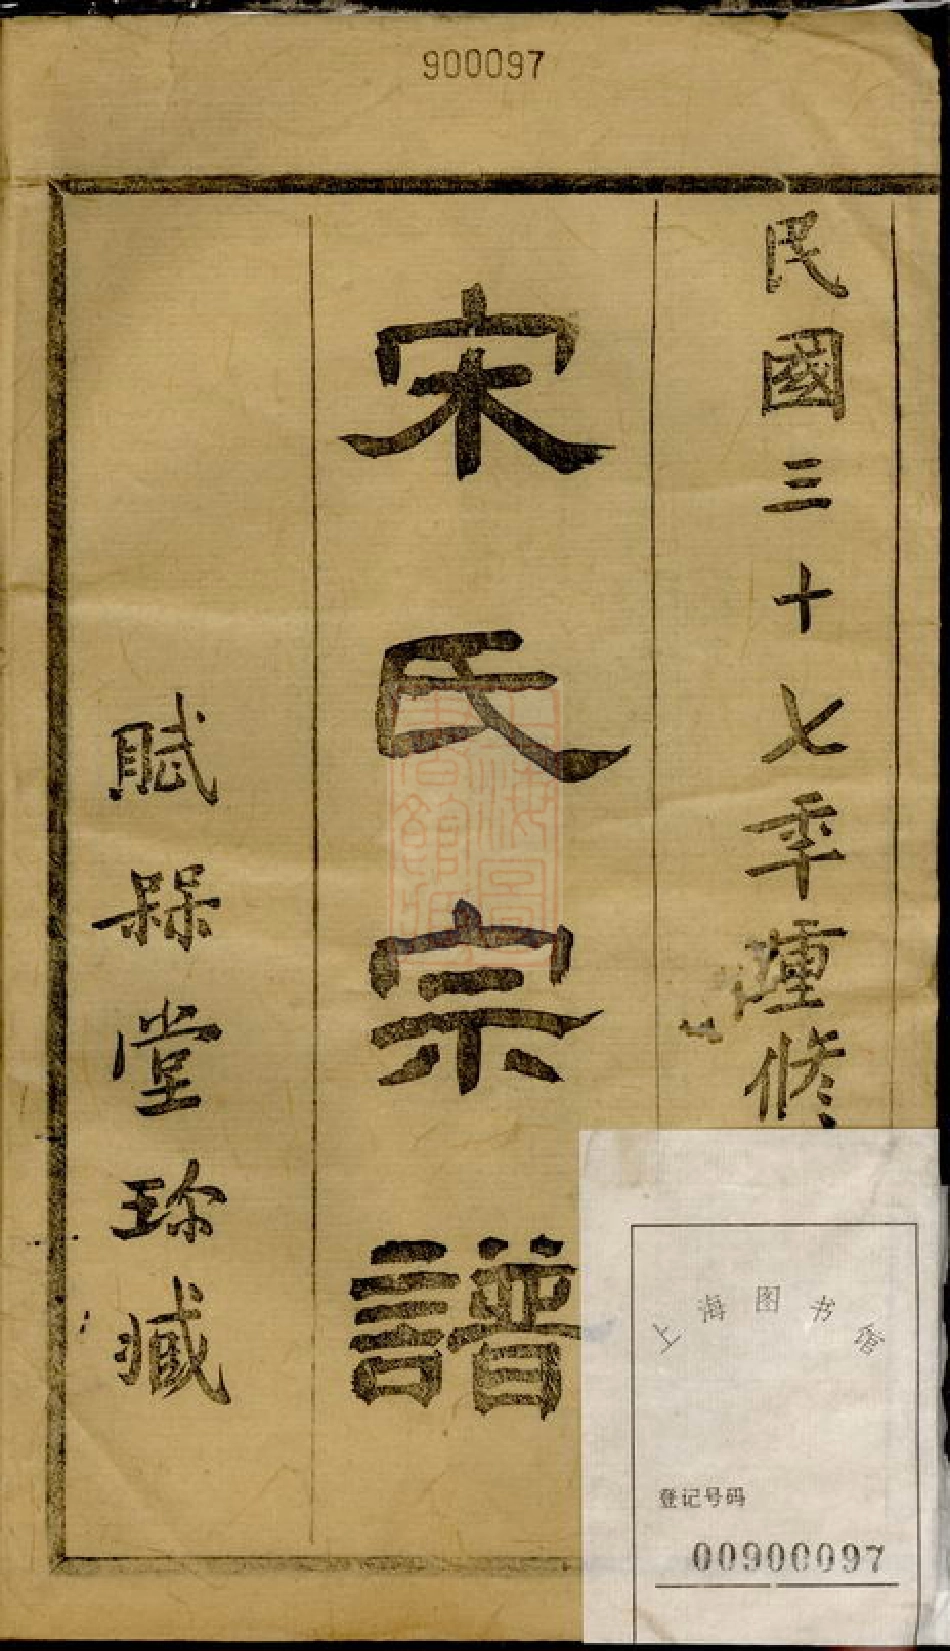 900097
民國三十七年重修
宋氏宗譜
賦槑堂珎藏
上海图书馆
登记号码
00900097